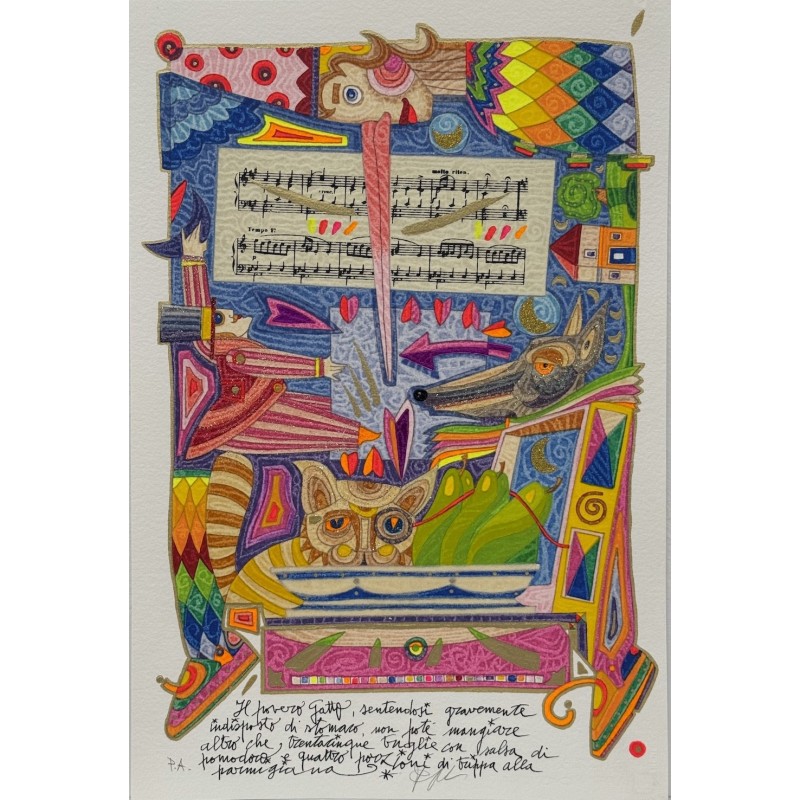 molto riten.
Tempo I?
Il povero Gatto, sentendosi gravemente
indisposto di stomaco, non poté mangiare
altro che, trentacinque triglie con salsa di
P.A.
pomodoro e quattro porzioni di trippa alla
parmigiana